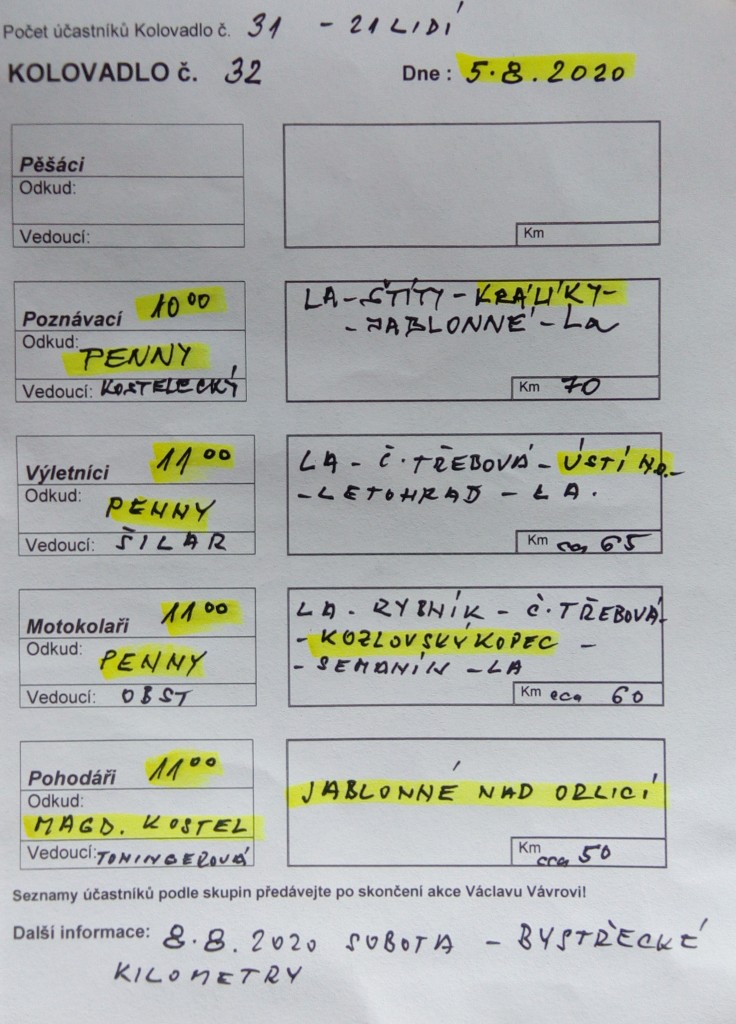 Počet účastníků Kolovadlo č. 31 - 21 LIDÍ
KOLOVADLO č. 32 Dne : 5.8.2020
Pěšáci
Odkud:
Vedoucí:
Km
Poznávací 10 00
Odkud:
PENNY
Vedoucí: KOSTELECKÝ
LA - ŠTÍTY - KRÁLÍKY -
- JABLONNÉ - LA
Km 70
Výletníci 11 00
Odkud:
PENNY
Vedoucí: ŠILAR
LA - Č. TŘEBOVÁ - ÚSTÍ N.O. -
- LETOHRAD - LA.
Km ca 65
Motokolaři 11 00
Odkud:
PENNY
Vedoucí: OBST
LA - RYBNÍK - Č. TŘEBOVÁ -
- KOZLOVSKÝ KOPEC -
- SEMANÍN - LA
Km cca 60
Pohodáři 11 00
Odkud:
MAGD. KOSTEL
Vedoucí: TONINGEROVÁ
JABLONNÉ NAD ORLICÍ
Km cca 50
Seznamy účastníků podle skupin předávejte po skončení akce Václavu Vávrovi!
Další informace: 8.8.2020 SOBOTA - BYSTŘECKÉ
KILOMETRY